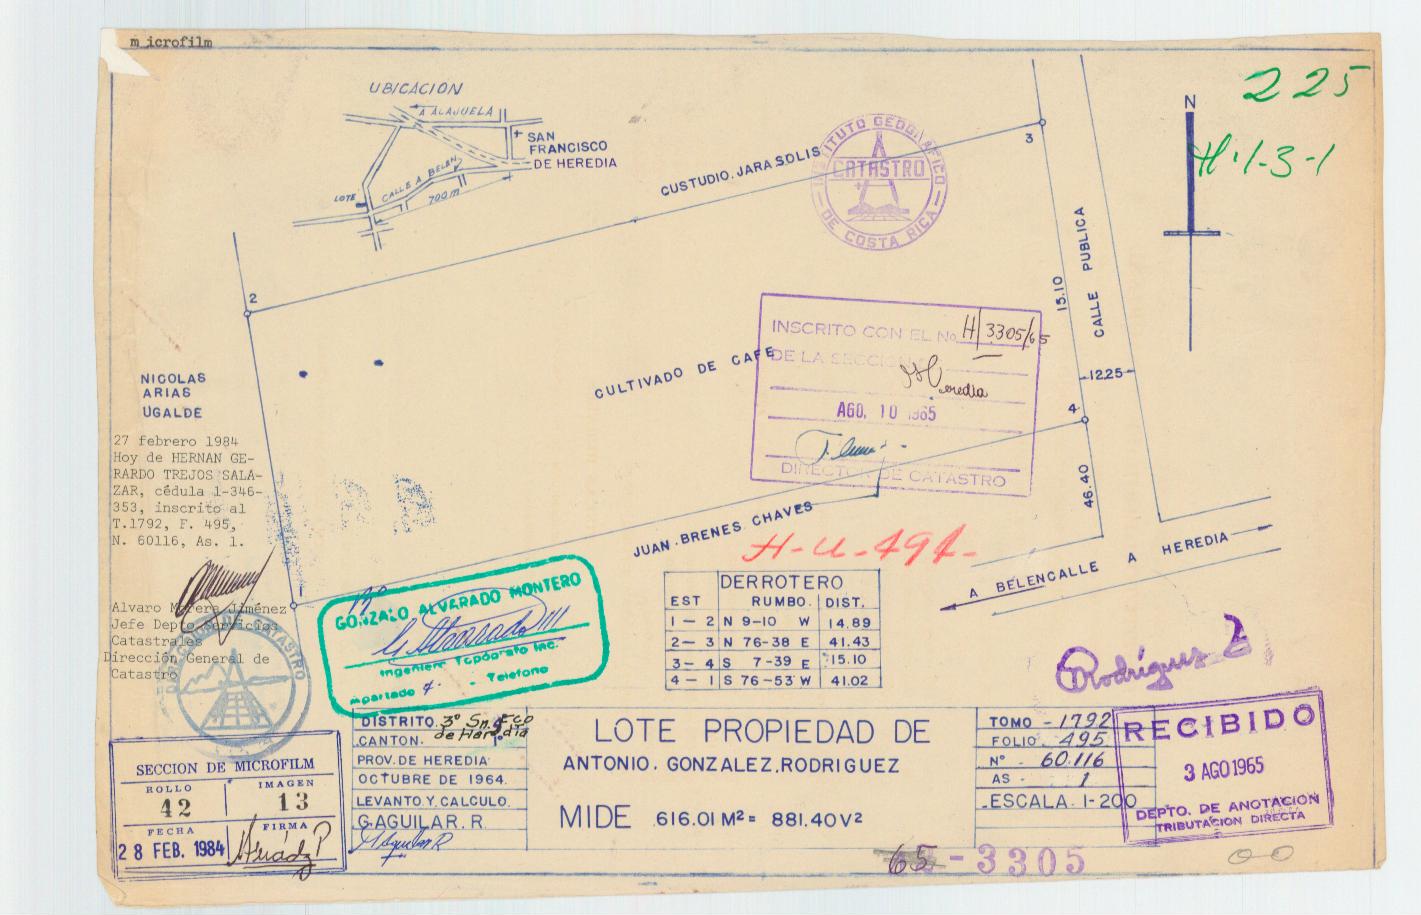 m icrofilm
UBICACION
A ALAJUELA
SAN
FRANCISCO
DE HEREDIA
CALLE A BELEN
LOTE
700 m
CUSTUDIO. JARA SOLIS
INSTITUTO GEOGRAFICO
CATASTRO
DE COSTA RICA
3
N
225
H-1-3-1
2
NICOLAS
ARIAS
UGALDE
27 febrero 1984
Hoy de HERNAN GE-
RARDO TREJOS SALA-
ZAR, cédula 1-346-
353, inscrito al
T.1792, F. 495,
N. 60116, As. 1.
Alvaro Morera Jiménez
Jefe Depto Servicios
Catastrales
Dirección General de
Catastro
CULTIVADO DE CAFE
INSCRITO CON EL No H/3305/65
DE LA SECCION
Heredia
AGO. 10 1965
DIRECTOR DE CATASTRO
15.10
CALLE PUBLICA
12.25
4
46.40
JUAN. BRENES CHAVES
H-U-494-
A BELENCALLE A HEREDIA
1
GONZALO ALVARADO MONTERO
G Alvarado M
Ingeniero Topógrafo Inc.
Apartado 4 - Telefono
DERROTERO
EST RUMBO. DIST.
1 - 2 N 9-10 W 14.89
2 - 3 N 76-38 E 41.43
3 - 4 S 7-39 E 15.10
4 - 1 S 76-53 W 41.02
Rodríguez
SECCION DE MICROFILM
ROLLO IMAGEN
42 13
FECHA FIRMA
28 FEB. 1984
DISTRITO. 3º Sn. Fco
de Heredia
CANTON. 1º
PROV. DE HEREDIA
OCTUBRE DE 1964.
LEVANTO. Y. CALCULO.
G. AGUILAR. R.
G Aguilar R
LOTE PROPIEDAD DE
ANTONIO. GONZALEZ. RODRIGUEZ
MIDE 616.01 M² = 881.40 V²
TOMO - 1792
FOLIO 495
Nº - 60.116
AS - 1
ESCALA. 1-200
RECIBIDO
3 AGO 1965
DEPTO. DE ANOTACION
TRIBUTACION DIRECTA
65-3305